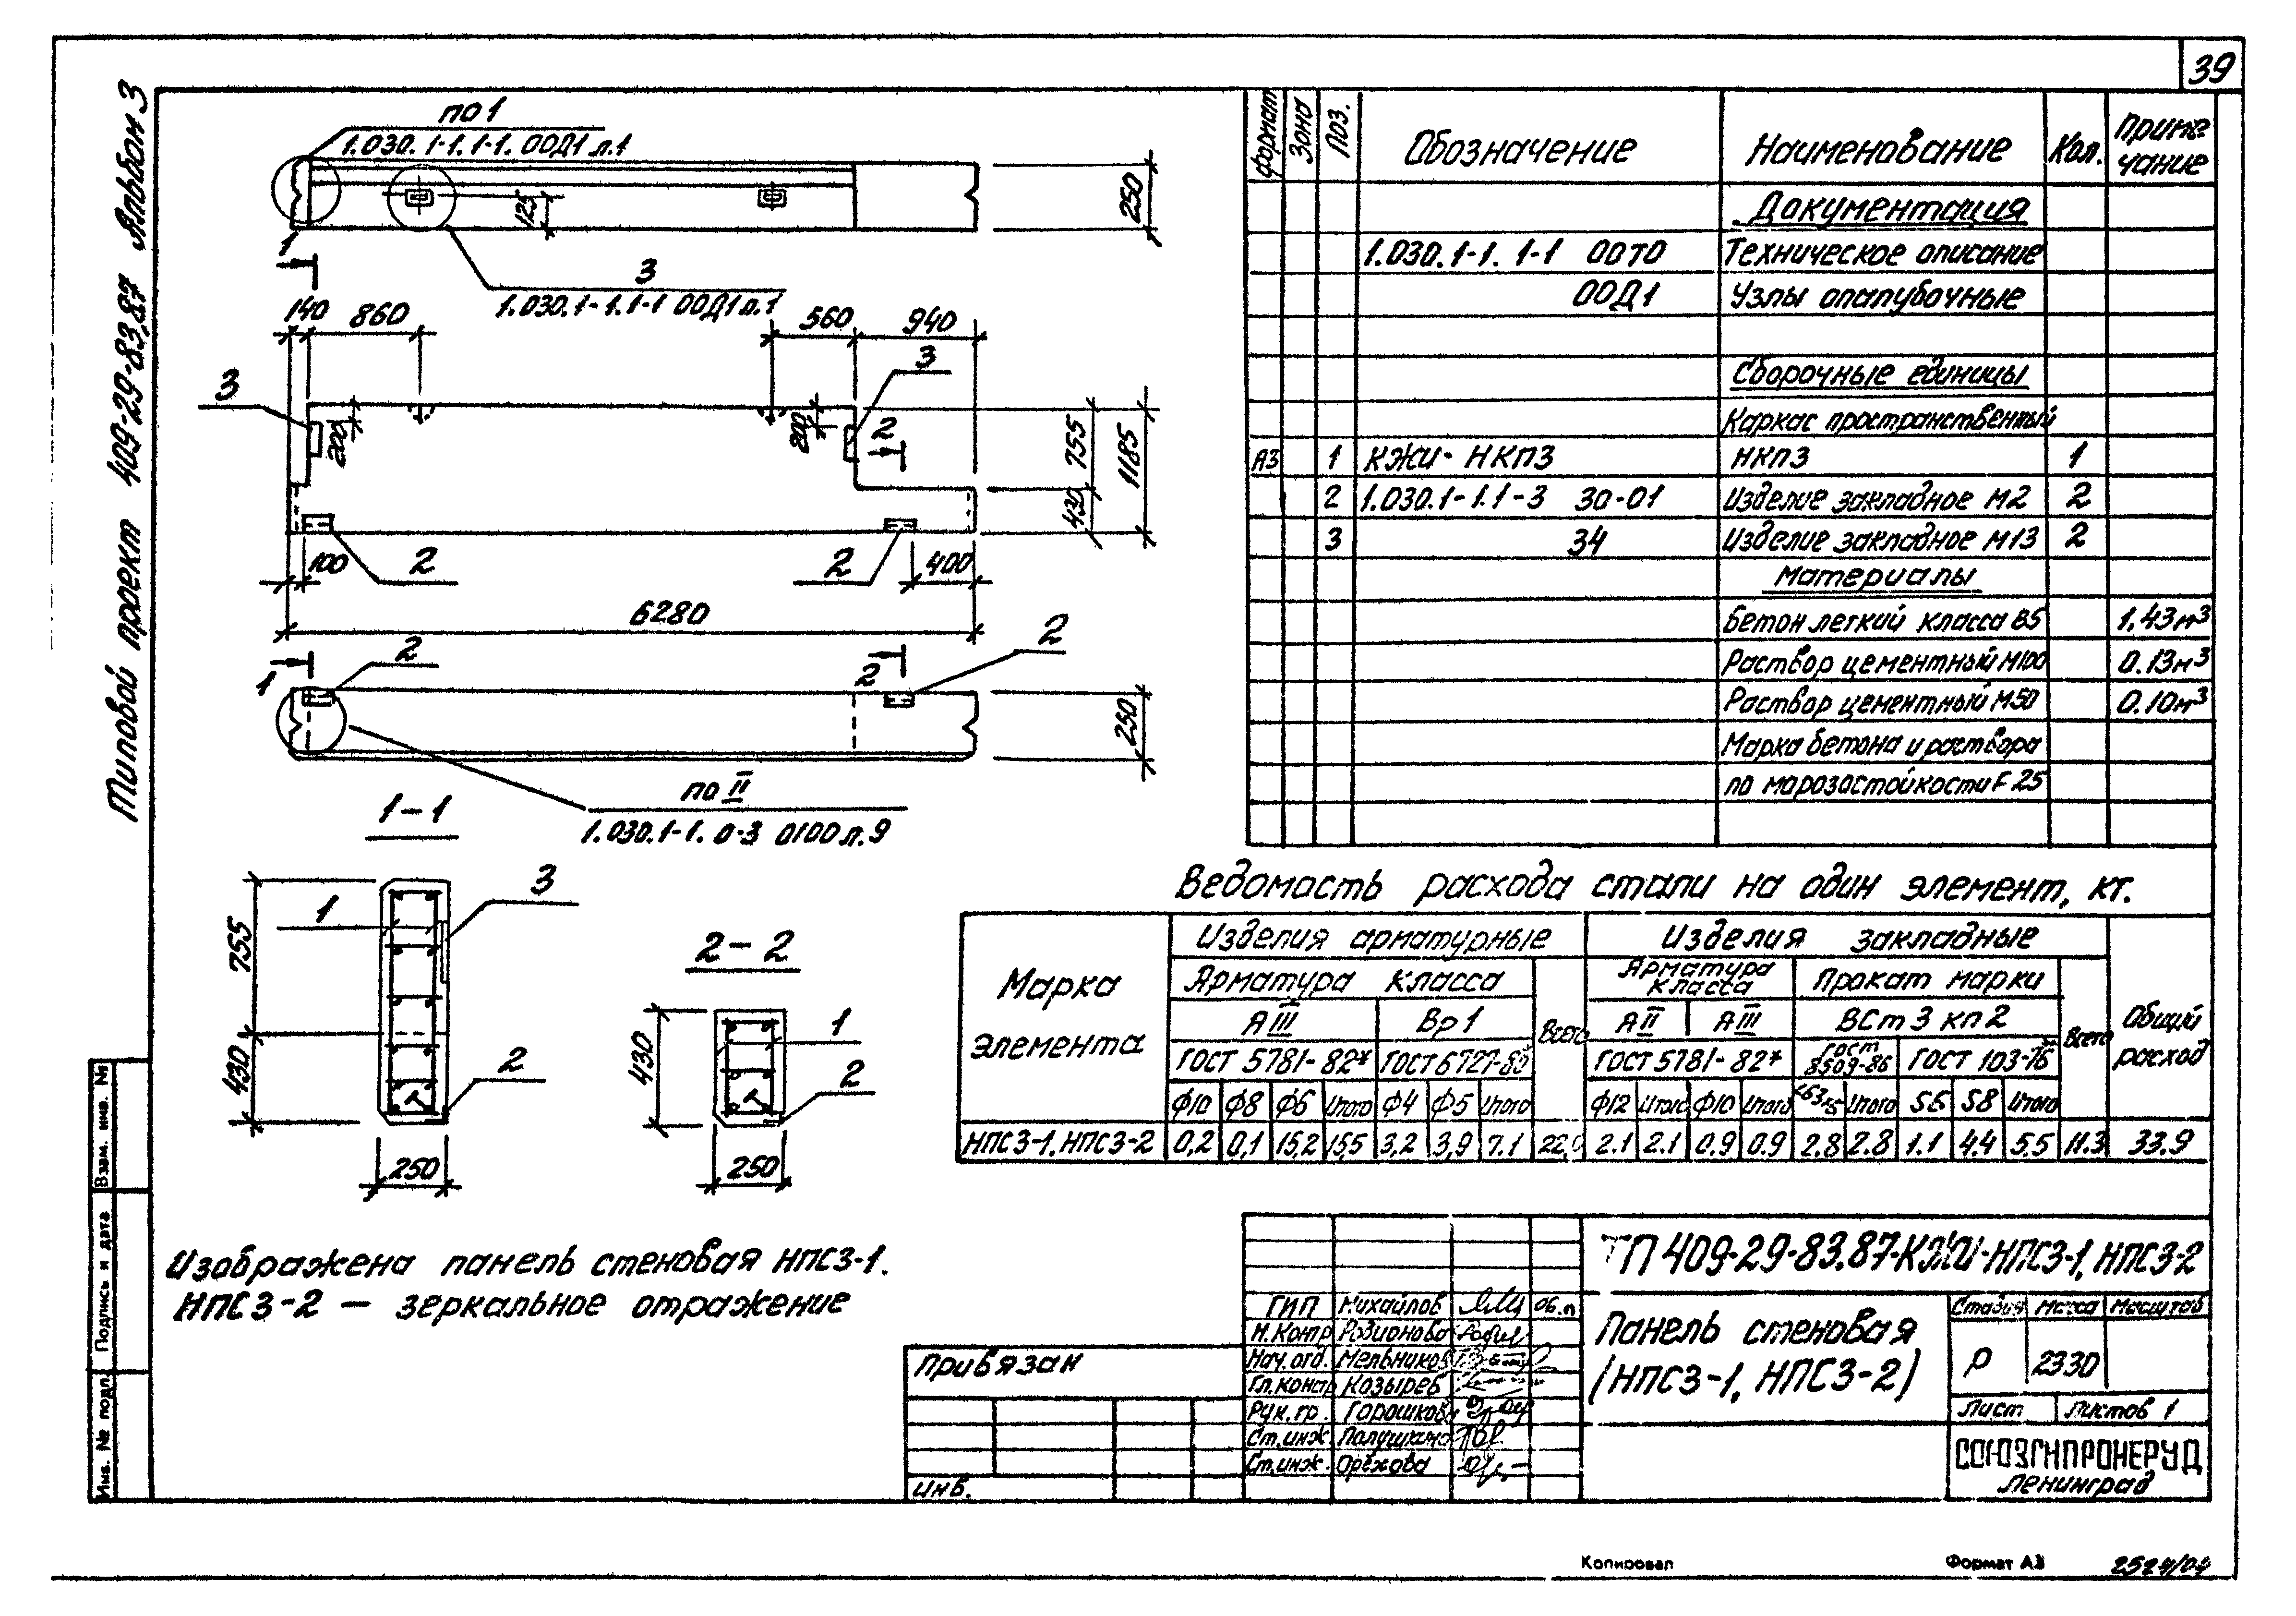 39
Типовой проект 409-29-83.87 Альбом 3
по 1
1.030.1-1.1-1. 00Д1 л.1
125
250
1
3
1.030.1-1.1-1 00Д1 л.1
140
860
560
940
3
3
200
200
2
755
1185
430
100
2
2
400
6280
2
2
1
2
250
по II
1.030.1-1. 0-3 0100 л.9
1-1
755
430
1
3
2
250
2-2
430
1
2
250
Изображена панель стеновая НПС3-1.
НПС3-2 — зеркальное отражение
Формат Зона Поз. Обозначение Наименование Кол. Примечание
Документация
1.030.1-1. 1-1 00Т0 Техническое описание
00Д1 Узлы опалубочные
Сборочные единицы
Каркас пространственный
А3 1 КЖИ- НКП3 НКП3 1
2 1.030.1-1.1-3 30-01 Изделие закладное М2 2
3 34 Изделие закладное М13 2
Материалы
Бетон легкий класса В5 1,43м³
Раствор цементный М100 0.13м³
Раствор цементный М50 0.10м³
Марка бетона и раствора
по морозостойкости F 25
Ведомость расхода стали на один элемент, кг.
Марка элемента
Изделия арматурные Изделия закладные
Арматура класса Арматура класса Прокат марки
АIII Вр1 Всего АII АIII ВСт3кп2 Всего Общий расход
ГОСТ 5781-82* ГОСТ 6727-80 ГОСТ 5781-82* ГОСТ 8509-86 ГОСТ 103-76
Ф10 Ф8 Ф6 Итого Ф4 Ф5 Итого Ф12 Итого Ф10 Итого Итого Итого
S8
НПС3-1, НПС3-2 0,2 0,1 15,2 15,5 3,2 3,9 7.1 2.1 2.1 0.9 0.9 2.8 2.8 1.1 4.4 5.5 11.3 33.9
ТП 409-29-83.87-КЖИ-НПС3-1, НПС3-2
ГИП Михайлов
Н.контр Родионова
Нач.отд. Мельников
Гл.констр Козырев
Рук.гр. Горошкова
Ст.инж
Ст.инж. Орехова
Панель стеновая
(НПС3-1, НПС3-2)
Стадия Масса Масштаб
Р 2330
Лист Листов 1
СОЮЗГИПРОНЕРУД
Ленинград
Привязан
Инв.
Взам. инв. №
Подпись и дата
Инв. № подл.
Копировал
Формат А3